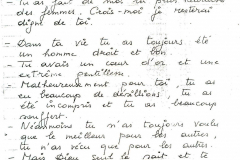 Tu as fait de moi la plus heureuse
des femmes. Crois-moi je resterai
digne de toi.
- Dans ta vie tu as toujours été
un homme droit et bon.
- Tu avais un cœur d'or et une
extrême gentillesse.
- Malheureusement pour toi, tu as
eu beaucoup de désillusions, tu as
été incompris et tu as beaucoup
souffert.
- Néanmoins tu n'as toujours voulu
que le meilleur pour les autres,
tu n'as vécu que pour les autres.
- Mais Dieu seul le sait et te